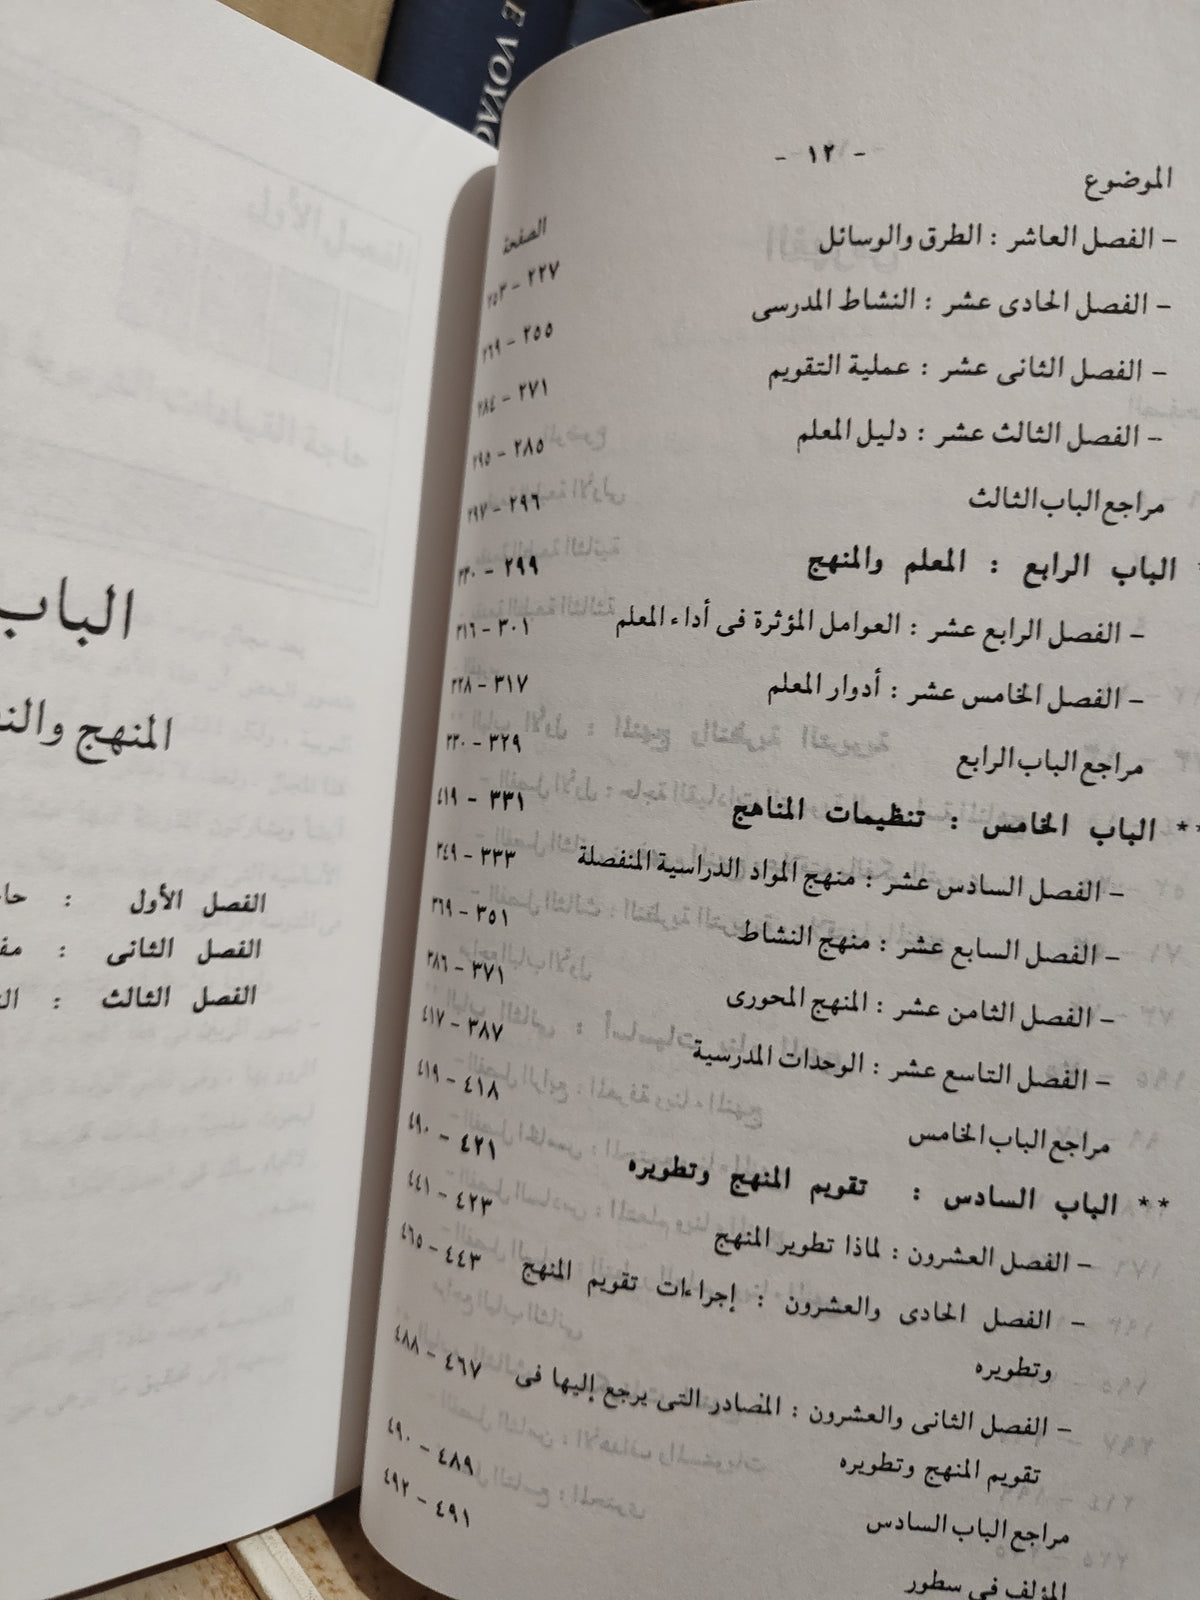 E VOYAG
- ١٢ -
الموضوع
الصفحة
- الفصل العاشر : الطرق والوسائل ٢٢٧ - ٢٥٣
- الفصل الحادى عشر : النشاط المدرسى ٢٥٥ - ٢٦٩
- الفصل الثانى عشر : عملية التقويم ٢٧١ - ٢٨٤
- الفصل الثالث عشر : دليل المعلم ٢٨٥ - ٢٩٥
مراجع الباب الثالث ٢٩٦ - ٢٩٧
الباب الرابع : المعلم والمنهج ٢٩٩ - ٣٣٠
- الفصل الرابع عشر : العوامل المؤثرة فى أداء المعلم ٣٠١ - ٣١٦
- الفصل الخامس عشر : أدوار المعلم ٣١٧ - ٣٢٨
مراجع الباب الرابع ٣٢٩ - ٣٣٠
** الباب الخامس : تنظيمات المناهج ٣٣١ - ٤١٩
- الفصل السادس عشر : منهج المواد الدراسية المنفصلة ٣٣٣ - ٣٤٩
- الفصل السابع عشر : منهج النشاط ٣٥١ - ٣٦٩
- الفصل الثامن عشر : المنهج المحورى ٣٧١ - ٣٨٦
- الفصل التاسع عشر : الوحدات المدرسية ٣٨٧ - ٤١٧
مراجع الباب الخامس ٤١٨ - ٤١٩
** الباب السادس : تقويم المنهج وتطويره ٤٢١ - ٤٩٠
- الفصل العشرون : لماذا تطوير المنهج ٤٢٣ - ٤٤١
- الفصل الحادى والعشرون : إجراءات تقويم المنهج ٤٤٣ - ٤٦٥
وتطويره
- الفصل الثانى والعشرون : المصادر التى يرجع إليها فى ٤٦٧ - ٤٨٨
تقويم المنهج وتطويره
مراجع الباب السادس ٤٨٩ - ٤٩٠
المؤلف فى سطور ٤٩١ - ٤٩٢
الباب
المنهج
الفصل الأول :
الفصل الثانى :
الفصل الثالث :